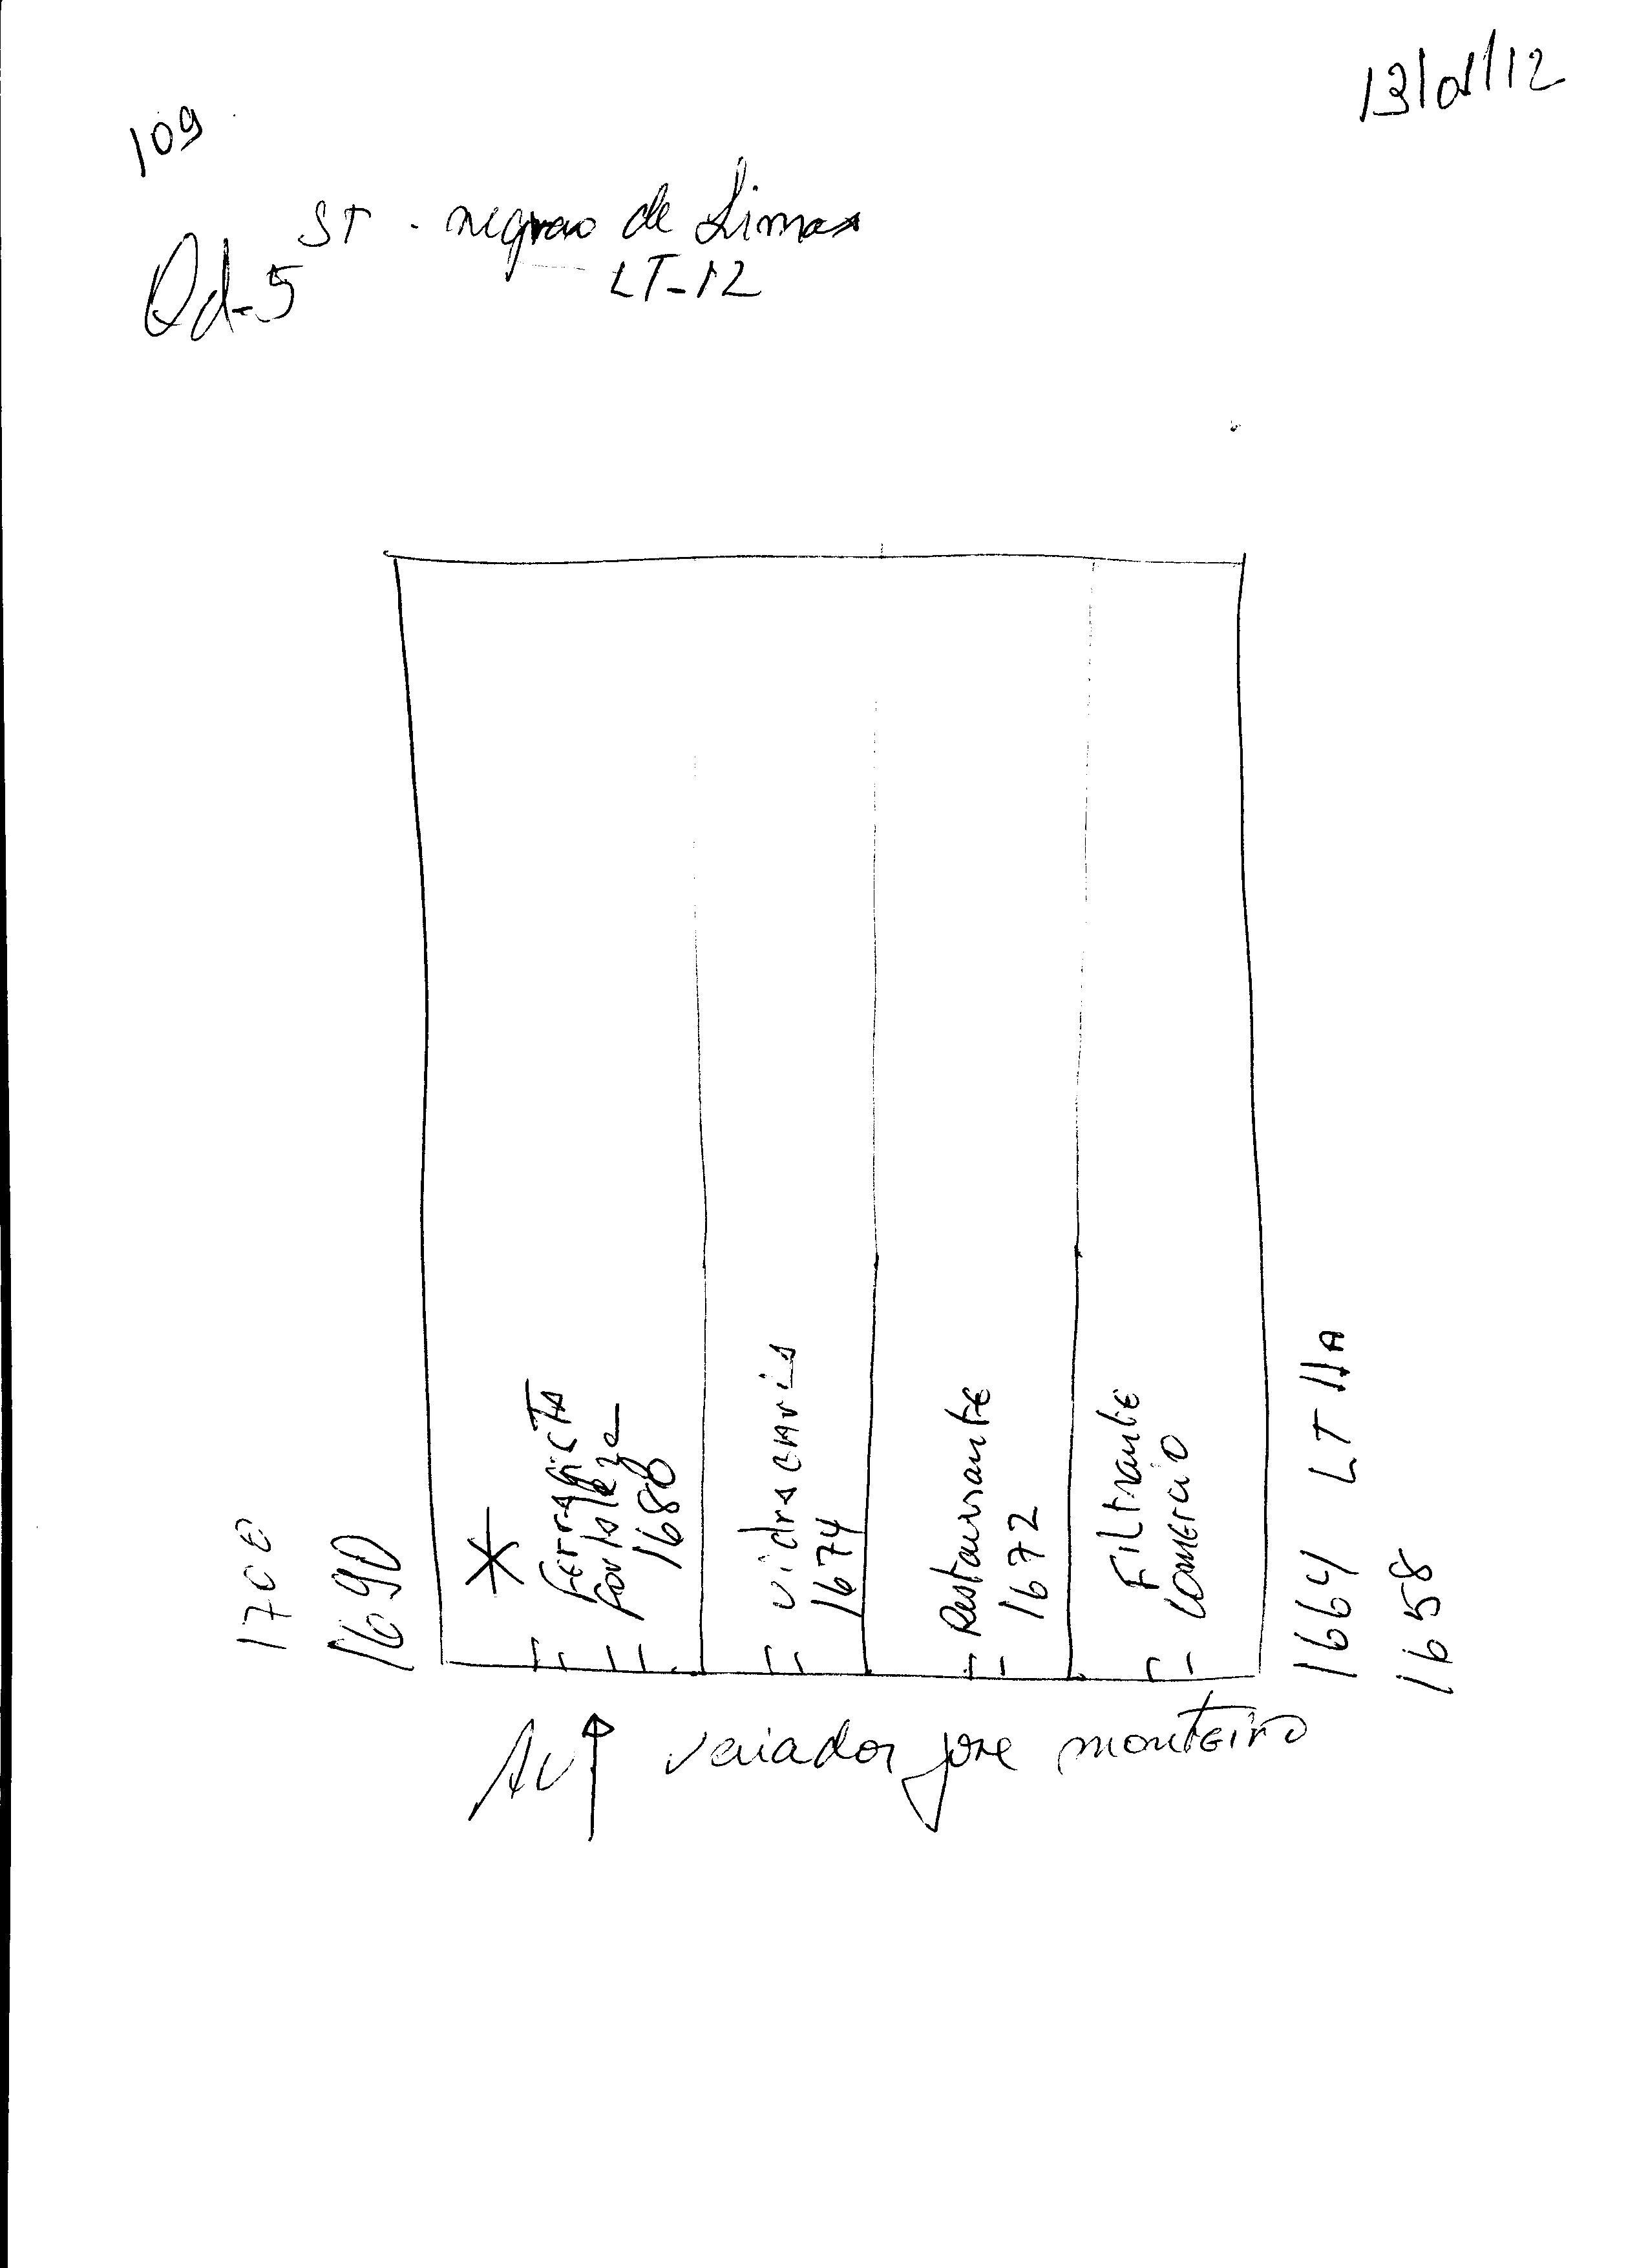 13/01/12
109
ST - negrao de Lima
Qd-5 LT-12
1700
1690
Ferragista
Fortaleza
1680
vidraçaria
1674
Restaurante
1672
Filtrante
comercio
1664 LT 11A
1658
AV veriador jose monteiro